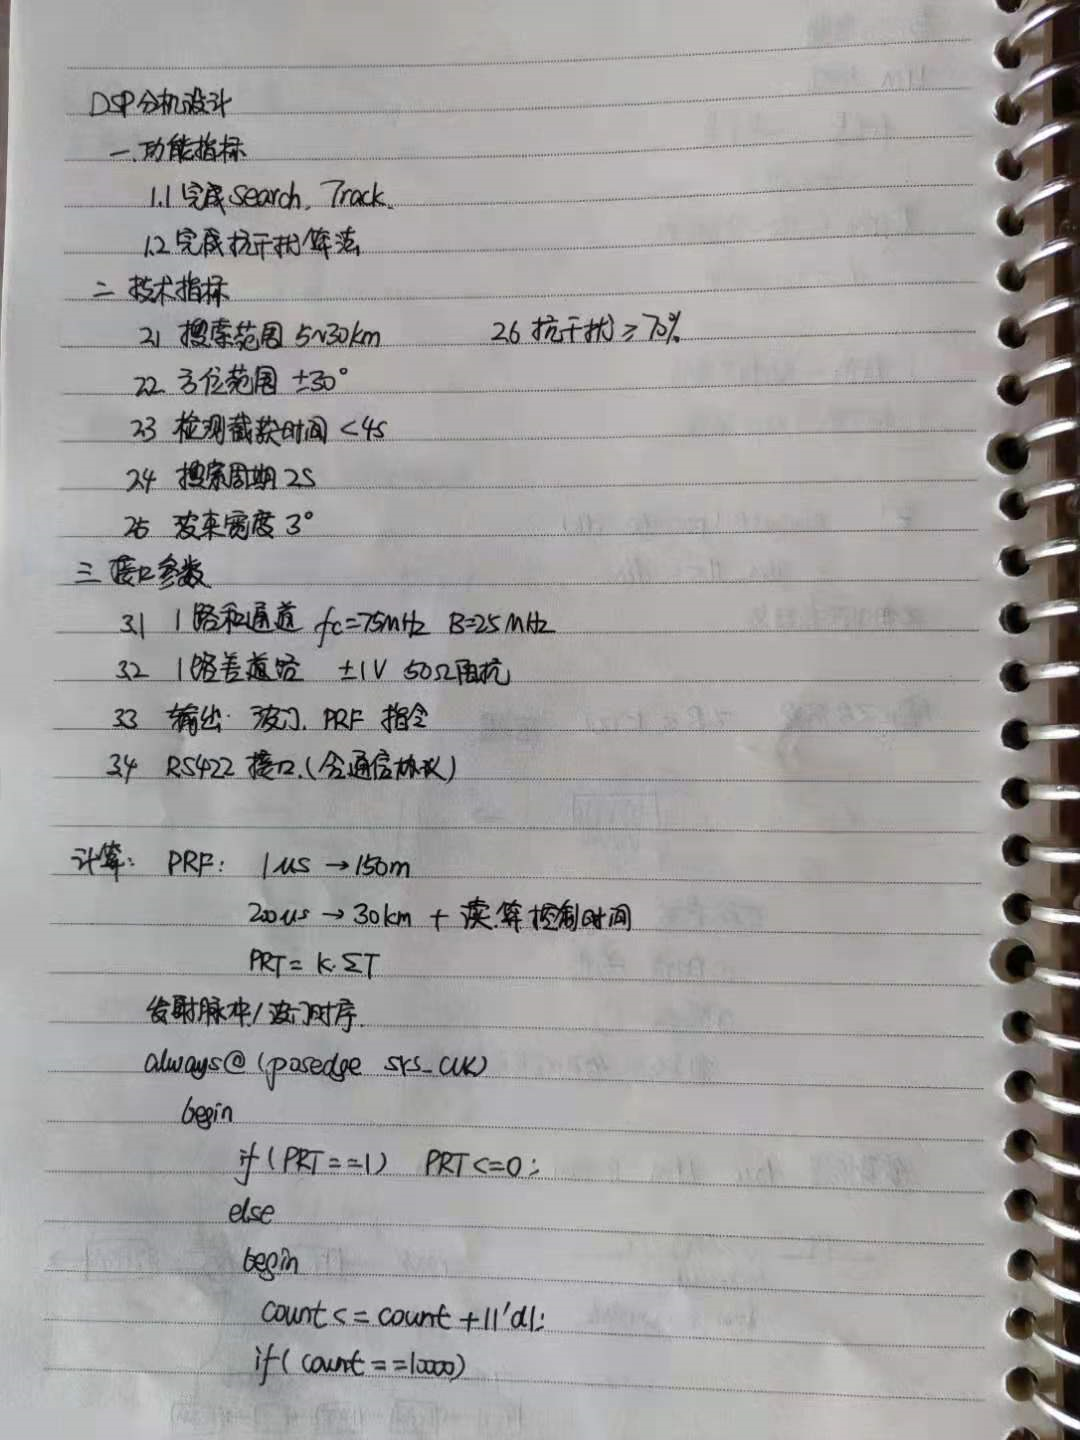 DSP分机设计
一.功能指标
1.1 完成Search、Track、
1.2 完成抗干扰算法
二 技术指标
2.1 搜索范围 5~30km 2.6 抗干扰≥70%
2.2 方位范围 ±30°
2.3 检测截获时间 <4s
2.4 搜索周期 2S
2.5 波束宽度 3°
三 接口参数
3.1 1路和通道 fc=75MHz B=25MHz
3.2 1路差通路 ±1V 50Ω阻抗
3.3 输出: 波门、PRF 指令
3.4 RS422 接口.(含通信协议)
计算: PRF: 1us→150m
200us→30km + 读.算.控制时间
PRT=K·ΣT
发射脉冲/波门时序.
always@(posedge sys_clk)
begin
if(PRT==1) PRT<=0;
else
begin
count<=count+11'd1;
if(count==10000)